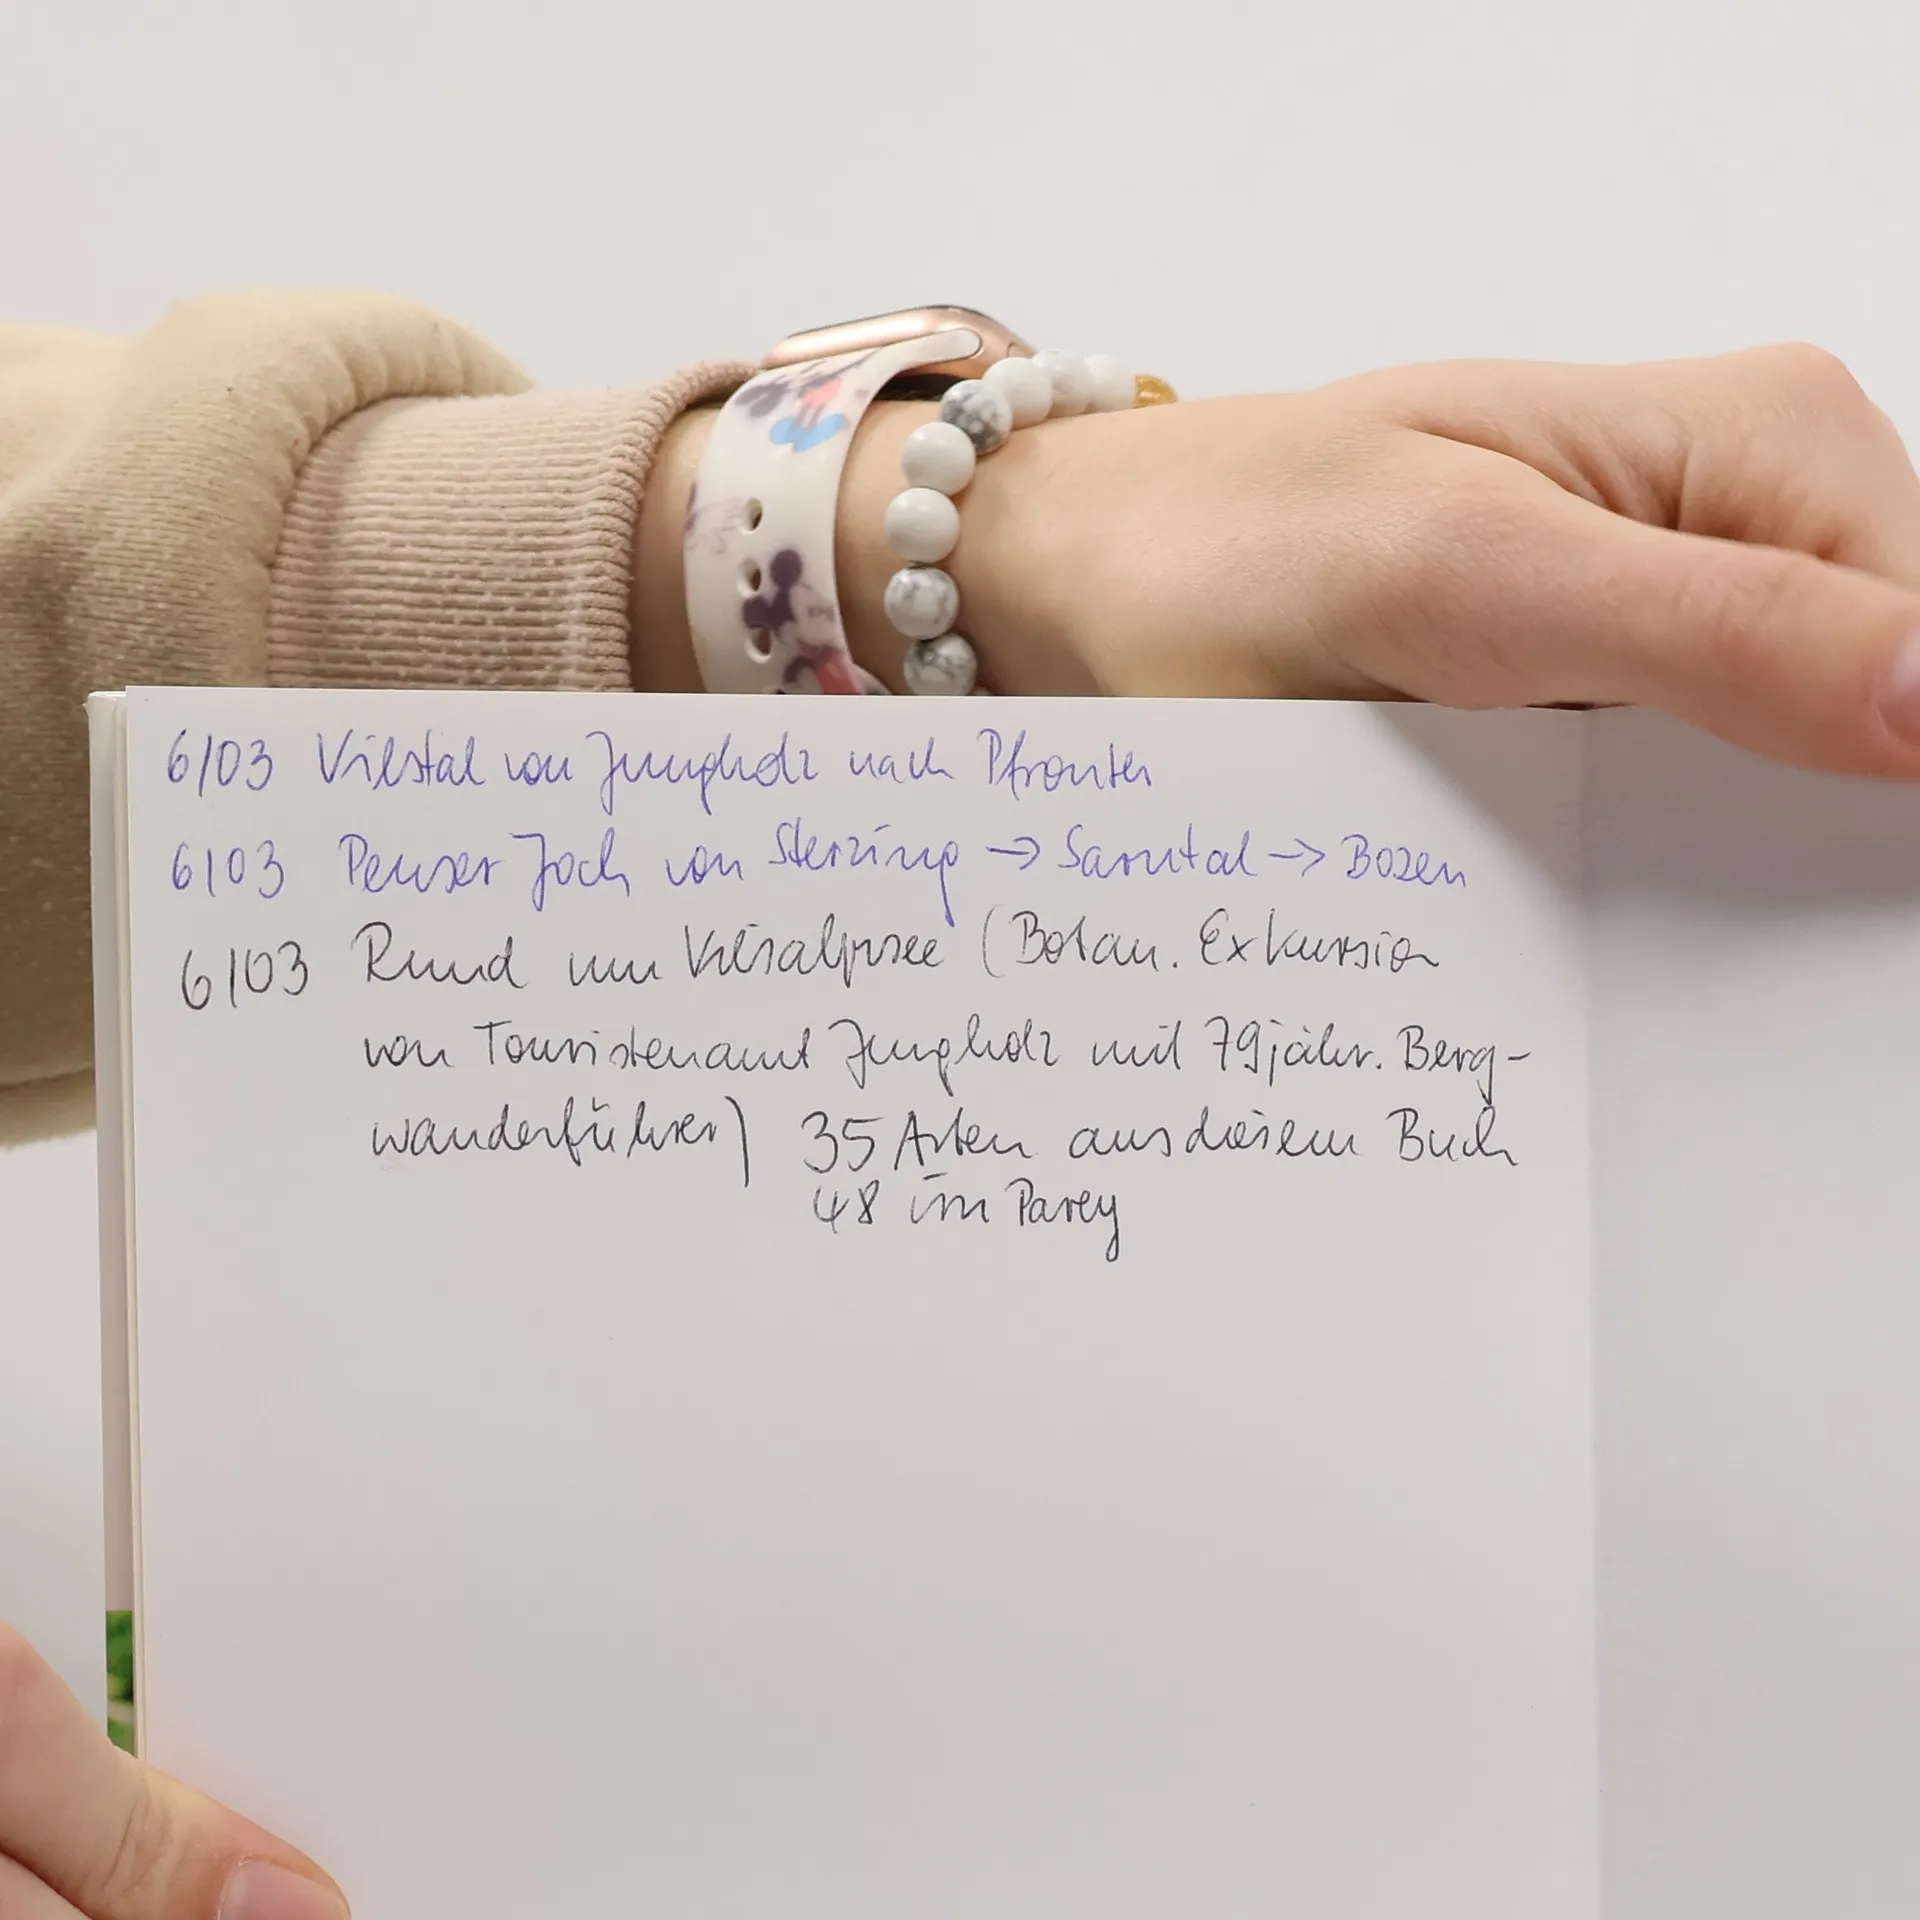 6/03 Vilstal von Jungholz nach Pfronten
6/03 Penser Joch von Sterzing → Sarntal → Bozen
6/03 Rund um Vilsalpsee (Botan. Exkursion
von Touristenamt Jungholz mit 79jähr. Berg-
wanderführer) 35 Arten aus diesem Buch
48 im Parey